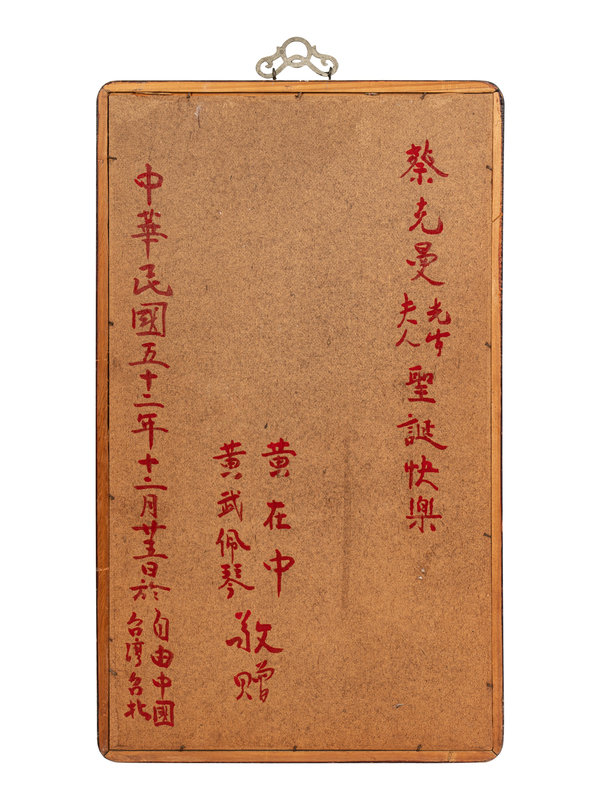 蔡克曼先生夫人聖誕快樂
黃在中
黃武佩琴
敬贈
中華民國五十二年十二月廿五日於自由中國台灣台北